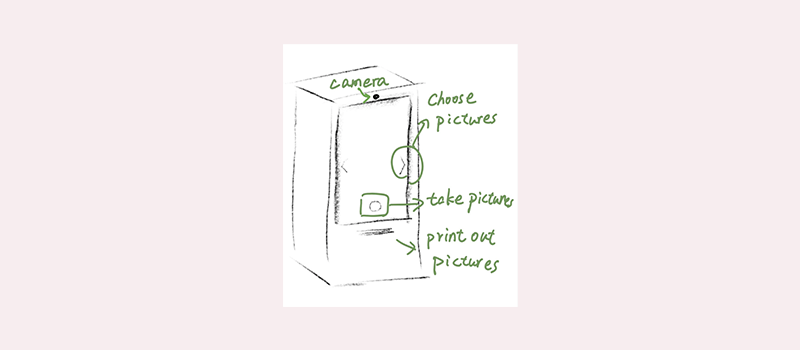 camera
Choose
pictures
take pictures
print out
pictures